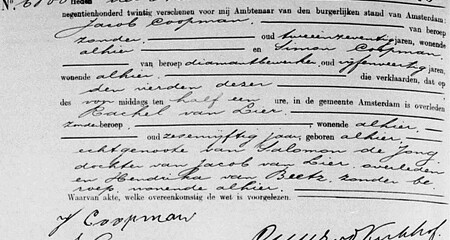 negentienhonderd twintig verschenen voor mij Ambtenaar van den burgerlijken stand van Amsterdam:
Jacob Coopman van beroep
zonder oud tweeënzeventig jaren, wonende
alhier en Simon Coopman
van beroep diamantbewerker oud vijfenveertig jaren,
wonende alhier die verklaarden, dat op
den vierden dezer
des voormiddags ten half een ure, in de gemeente Amsterdam is overleden
Rachel van Lier
zonder beroep, wonende alhier,
oud zevenvijftig jaar, geboren alhier
echtgenoote van Salomon de Jong
dochter van Jacob van Lier, overleden
en Hendrika van Beetz, zonder be
roep, wonende alhier.
Waarvan akte, welke overeenkomstig de wet is voorgelezen.
J Coopman